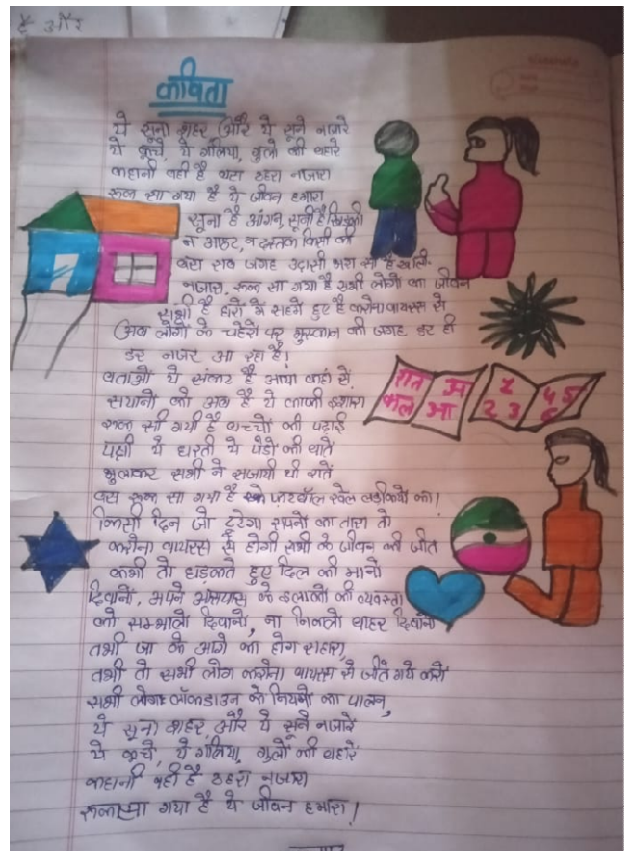 है और
कविता
ये सूना शहर और ये सूने नजारे
ये कूचे, ये गलिया, गुलो की बहारे
कहानी वही है बस ठहरा नजारा
रूक सा गया है ये जीवन हमारा
सूना है आंगन, सूनी है खिडकी
न आहट, न दस्तक किसी की
बस सब जगह उदासी भरा सा है खाली
बाजार, रूक सा गया है सभी लोगो का जीवन
सभी है घरों में सहमे हुए है करोना वायरस से
अब लोगों के चहेरो पर मुस्कान की जगह डर ही
डर नजर आ रहा है!
बताओ ये संकट है आया कहां से
सयानों को अब है ये काफी इशारा
रूक सी गयी है बच्चों की पढ़ाई
पक्षी ये धरती ये पेडो की बातें
भुलाकर सभी ने सजायी थी रातें
बस रूक सा गया है फुटबॉल खेल लडकियों का!
किसी दिन जो टूटेगा सपनों का तारा तो
करोना वायरस से होगी सभी के जीवन की जीत
कभी तो धड़कते हुए दिल की मानो
दिवानों, अपने आसपास के इलाकों की व्यवस्ता
को सम्भालो दिवानों, ना निकलो बाहर दिवानों
तभी जा के आगे का होग सहारा,
तभी तो सभी लोग करोना वायरस से जीत गये करों
सभी लोग लॉकडाउन के नियमों का पालन,
ये सूना शहर, और ये सूने नजारें
ये कूचे, ये गलिया, गुलों की बहारें
कहानी वही है ठहरा नजारा
रूकासा गया है ये जीवन हमारा!
रात अ
कल आ
1
2 3
4 5
6